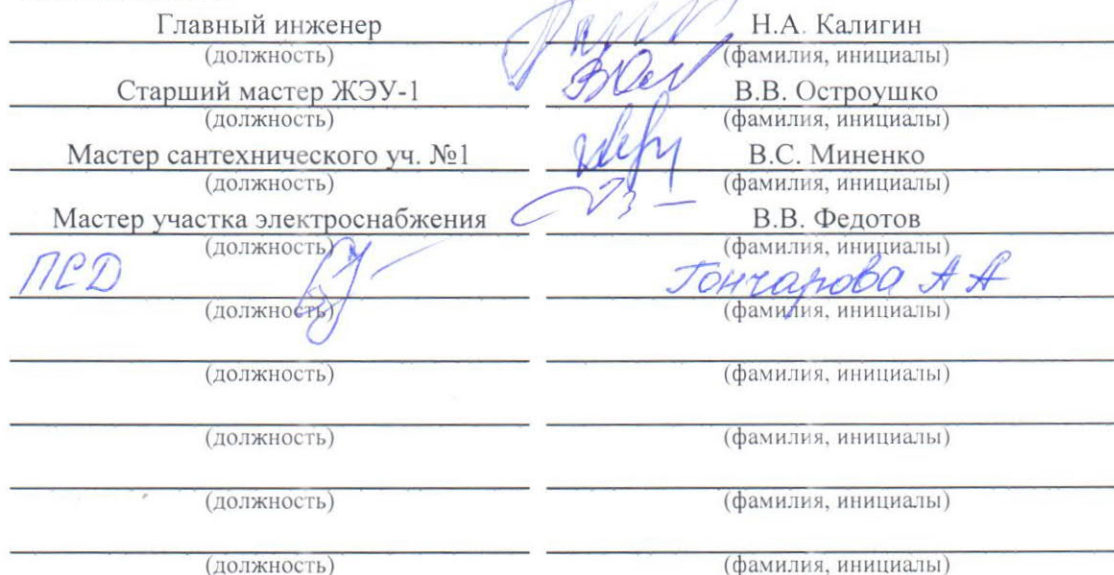 Главный инженер Н.А. Калигин
(должность) (фамилия, инициалы)
Старший мастер ЖЭУ-1 В.В. Остроушко
(должность) (фамилия, инициалы)
Мастер сантехнического уч. №1 В.С. Миненко
(должность) (фамилия, инициалы)
Мастер участка электроснабжения В.В. Федотов
(должность) (фамилия, инициалы)
ПСД Гончарова А А
(должность) (фамилия, инициалы)
(должность) (фамилия, инициалы)
(должность) (фамилия, инициалы)
(должность) (фамилия, инициалы)
(должность) (фамилия, инициалы)